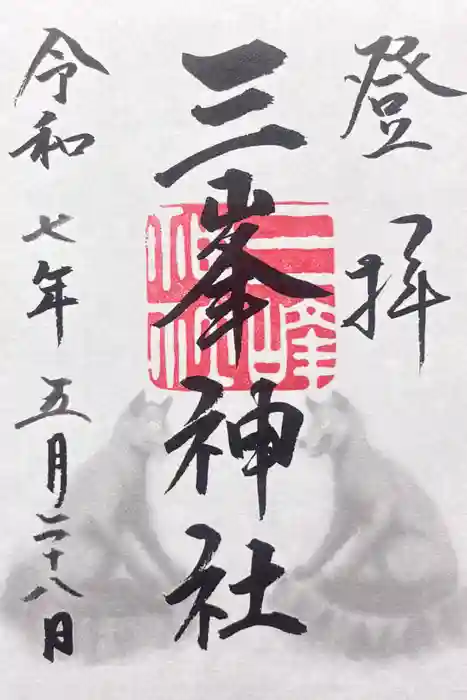 登拝
三峯神社
三峰
神社
令和七年五月二十八日